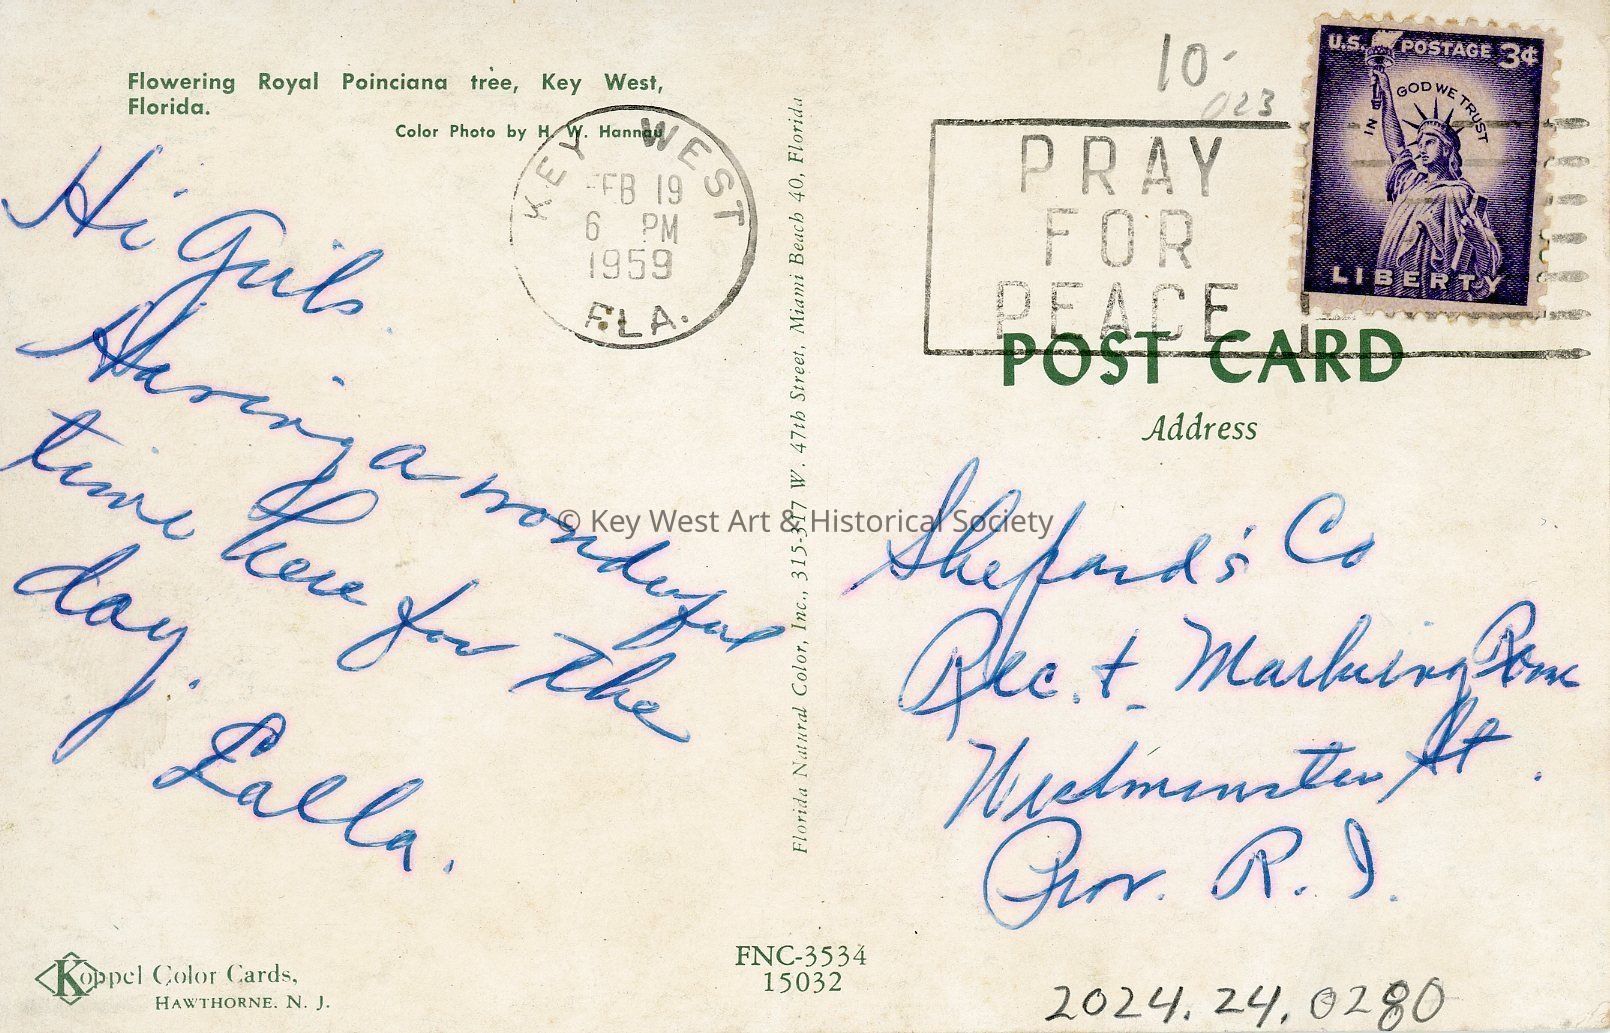 Flowering Royal Poinciana tree, Key West,
Florida.
Color Photo by H. W. Hannau
Hi Girls.
Having a wonderful
time here for the
day.
Lalla.
KEY WEST
FEB 19
6 PM
1959
FLA.
Florida Natural Color, Inc., 315-317 W. 47th Street, Miami Beach 40, Florida
10-
023
PRAY
FOR
PEACE
U.S. POSTAGE 3¢
IN GOD WE TRUST
LIBERTY
POST CARD
Address
Shepard's Co
Rec. + Marking Room
Westminster St.
Prov. R. I.
© Key West Art & Historical Society
Koppel Color Cards,
HAWTHORNE. N. J.
FNC-3534
15032
2024.24.0280